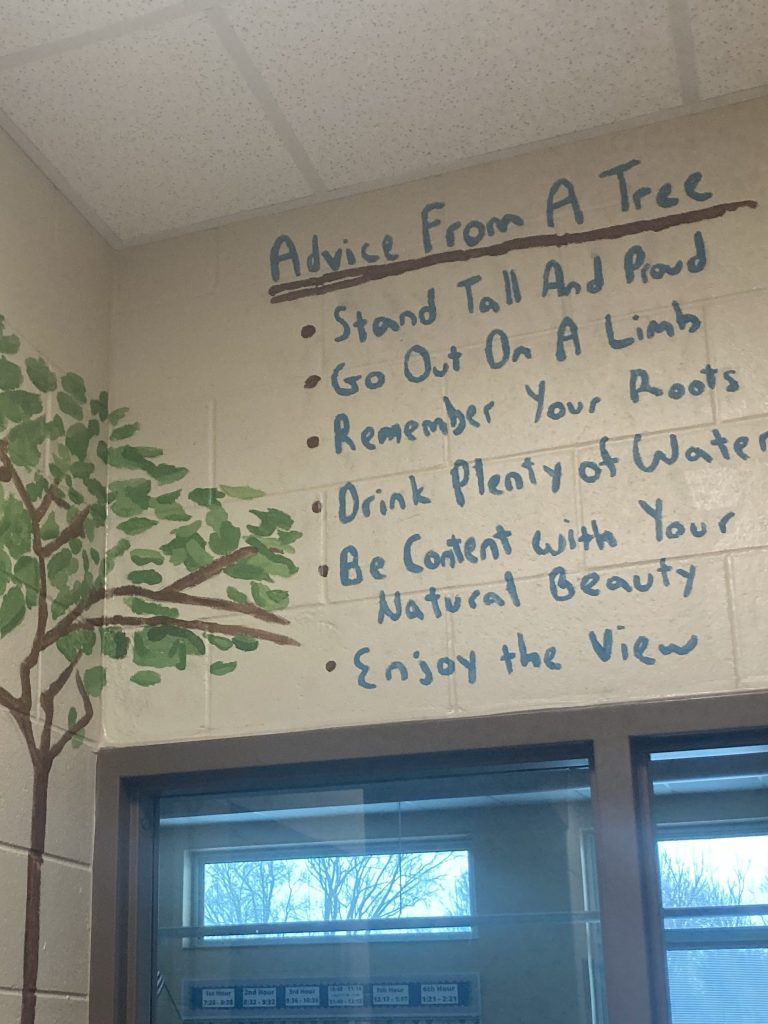 Advice From A Tree
• Stand Tall And Proud
• Go Out On A Limb
• Remember Your Roots
• Drink Plenty of Water
• Be Content with Your
Natural Beauty
• Enjoy the View
1st Hour 2nd Hour 3rd Hour 7th Hour 6th Hour
8:32 - 9:32 1:21 - 2:21